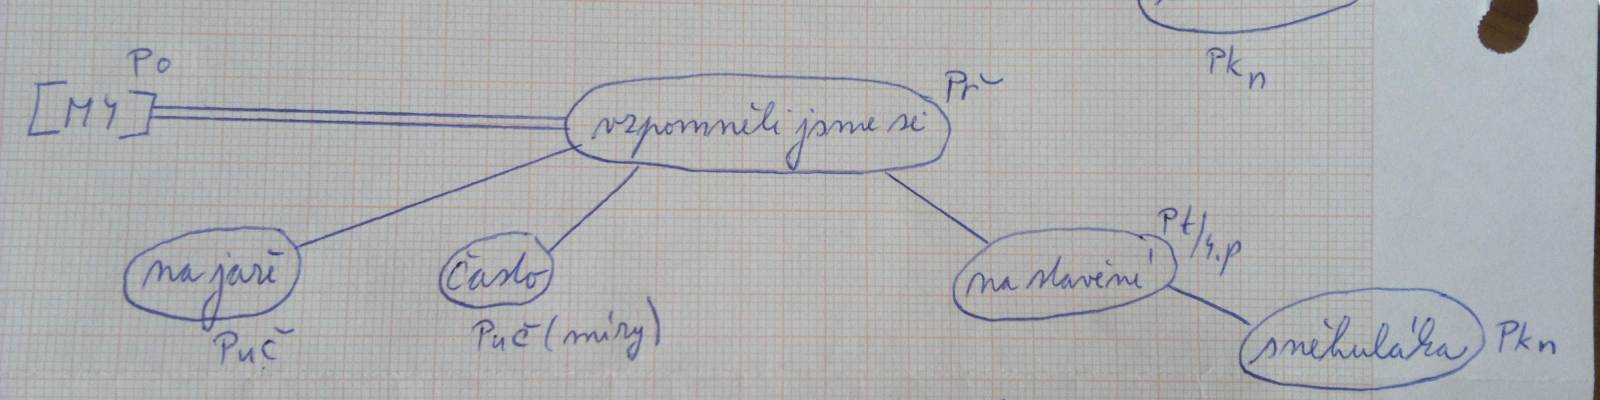 Pkn
Po
[MY]
vzpomněli jsme si
Př
na jaře
Puč
často
Puč (míry)
na stavění
Pt/4.p
sněhuláka
Pkn